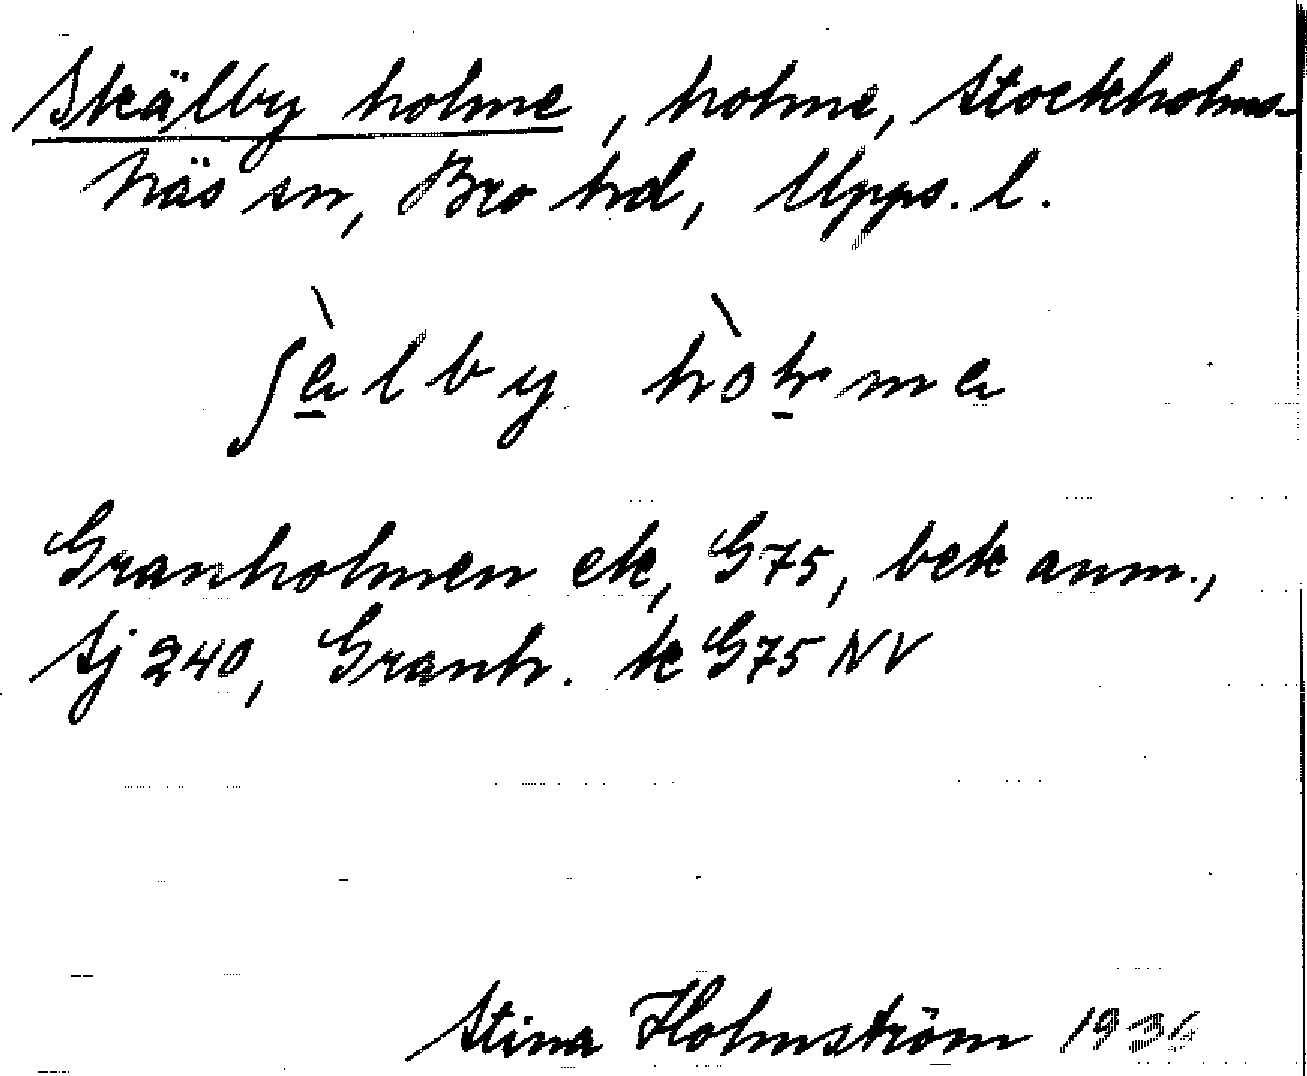 Skälby holme, holme, Stockholms-
näs sn, Bro hd, Upps. l.
ʃàlby hòlma
Granholmen ek, G75, bek anm.,
Sj 240, Granh. k G75 NV
Stina Holmström 1936